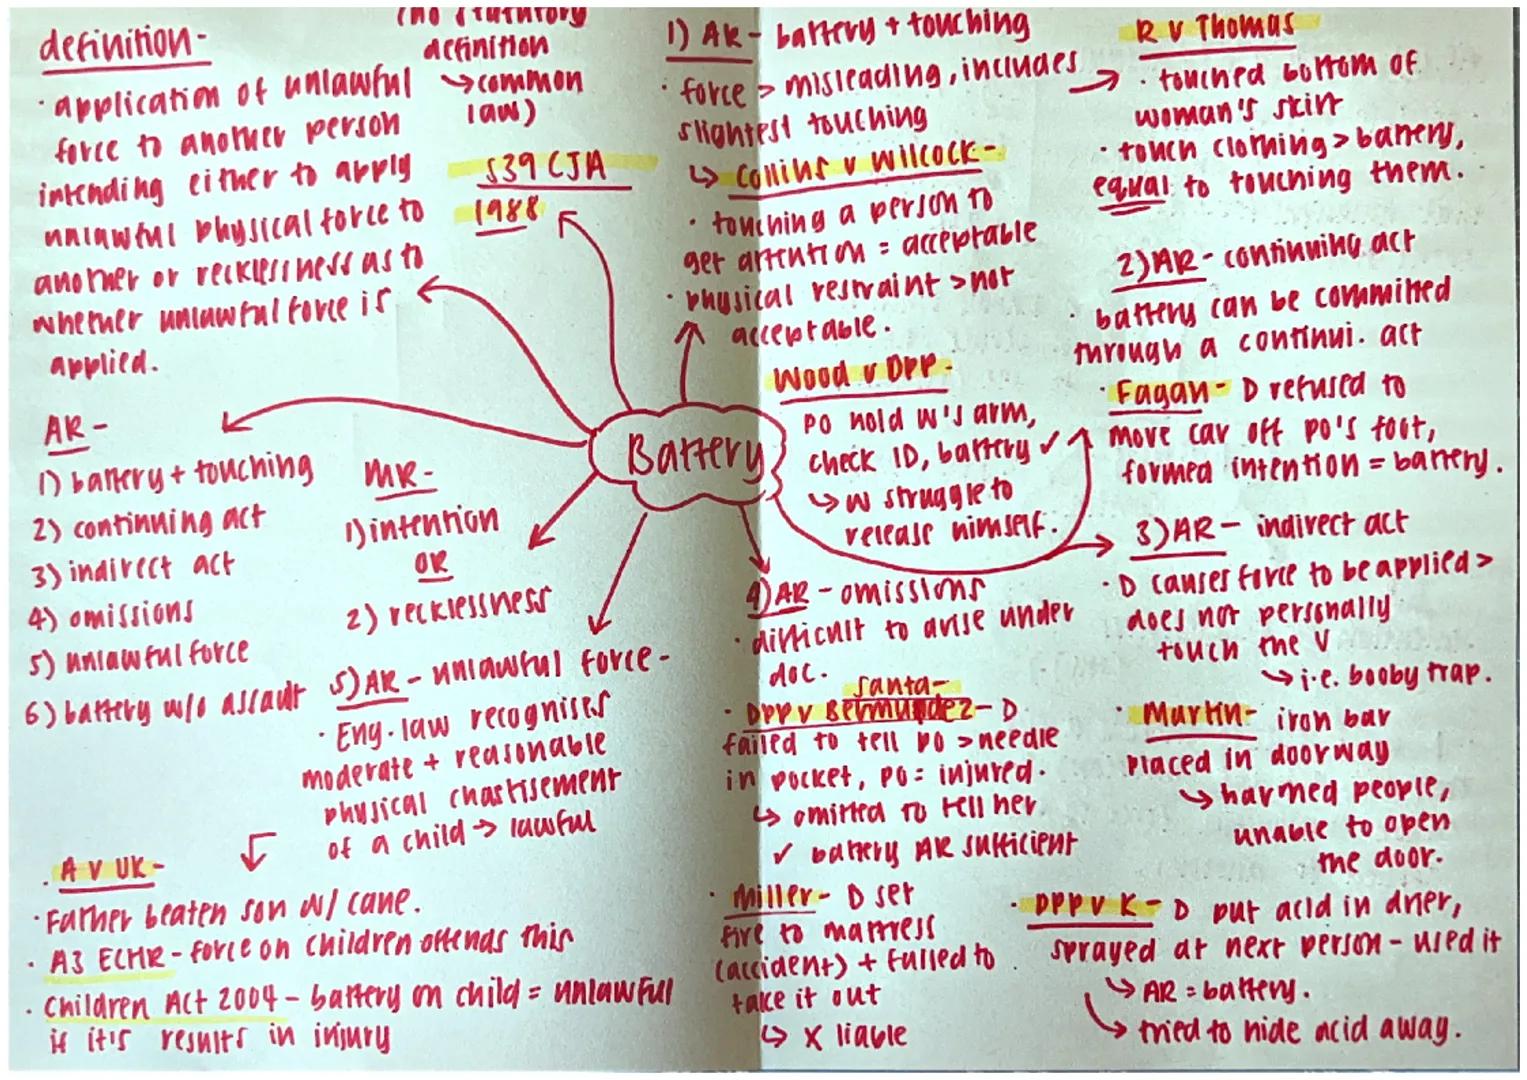 definition-
· application of unlawful
force to another person
intending either to apply
unlawful physical force to
another or recklessness as to
whether unlawful force is
applied.
(no statutory
definition
↳ common
law)
S39 CJA
1988
AR -
1) battery + touching
2) continuing act
3) indirect act
4) omissions
5) unlawful force
6) battery w/o assault
MR -
1) intention
OR
2) recklessness
Battery
1) AR - battery + touching
· force > misleading, includes
slightest touching
↳ Collins v Wilcock -
· touching a person to
get attention = acceptable
· physical restraint > not
acceptable.
Wood v DPP -
PO hold W's arm,
check ID, battery ✓
↳ W struggle to
release himself.
R v Thomas
→ · touched bottom of
woman's skirt
· touch clothing > battery,
equal to touching them.
2) AR - continuing act
· battery can be committed
through a continui. act
· Fagan - D refused to
move car off PO's foot,
formed intention = battery.
3) AR - indirect act
· D causes force to be applied >
does not personally
touch the V
↳ i.e. booby trap.
· Martin - iron bar
placed in doorway
↳ harmed people,
unable to open
the door.
· DPP v K - D put acid in drier,
sprayed at next person - used it
↳ AR = battery.
↳ tried to hide acid away.
4) AR - omissions
· difficult to arise under
doc.
Santa-
· DPP v Bermundez - D
failed to tell PO > needle
in pocket, PO = injured.
↳ omitted to tell her
✓ battery AR sufficient
· Miller - D set
fire to mattress
(accident) + failed to
take it out
↳ X liable
5) AR - unlawful force -
· Eng. law recognises
moderate + reasonable
physical chastisement
of a child → lawful
· A v UK -
· Father beaten son w/ cane.
· A3 ECHR - force on children offends this
· Children Act 2004 - battery on child = unlawful
if it's results in injury